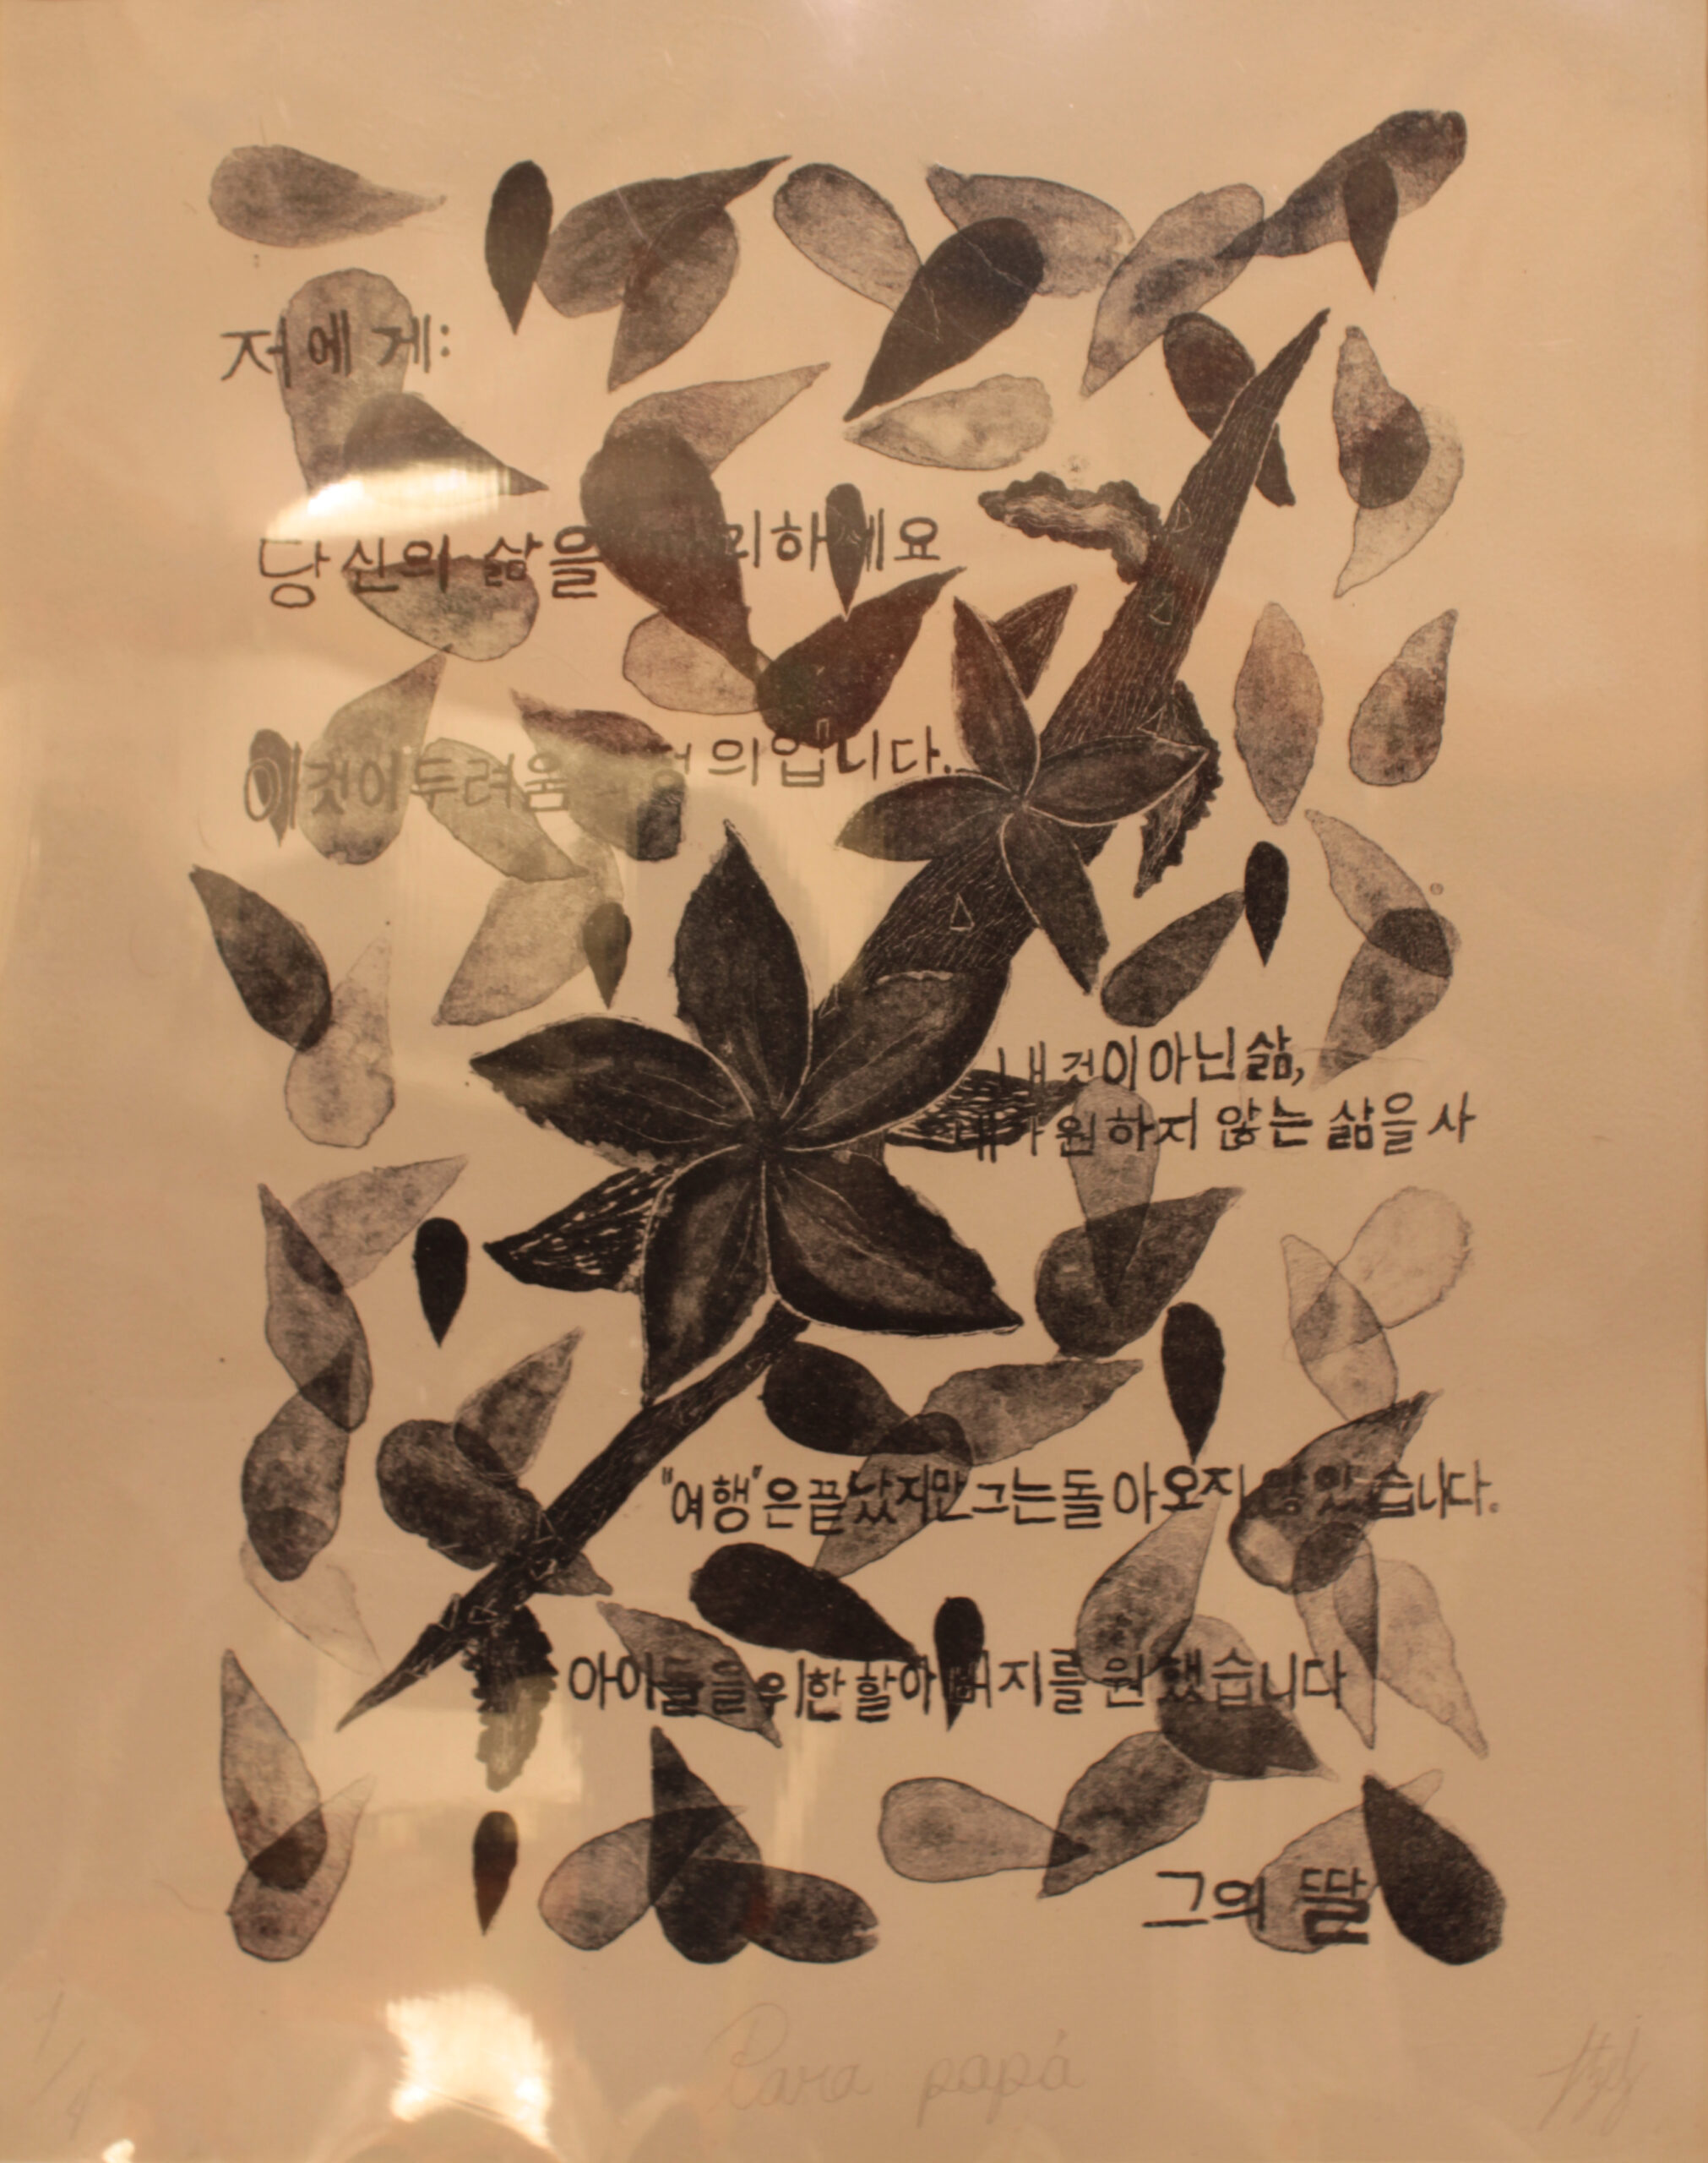 저에게:
당신의 삶을 리하세요
이것이두려움 의입니다.
내것이아닌삶,
내가원하지 않는 삶을사
"여행"은끝났지만그는돌아오지않았습니다.
아이들을위한할아버지를원했습니다
그의 딸
1/4
Para papá